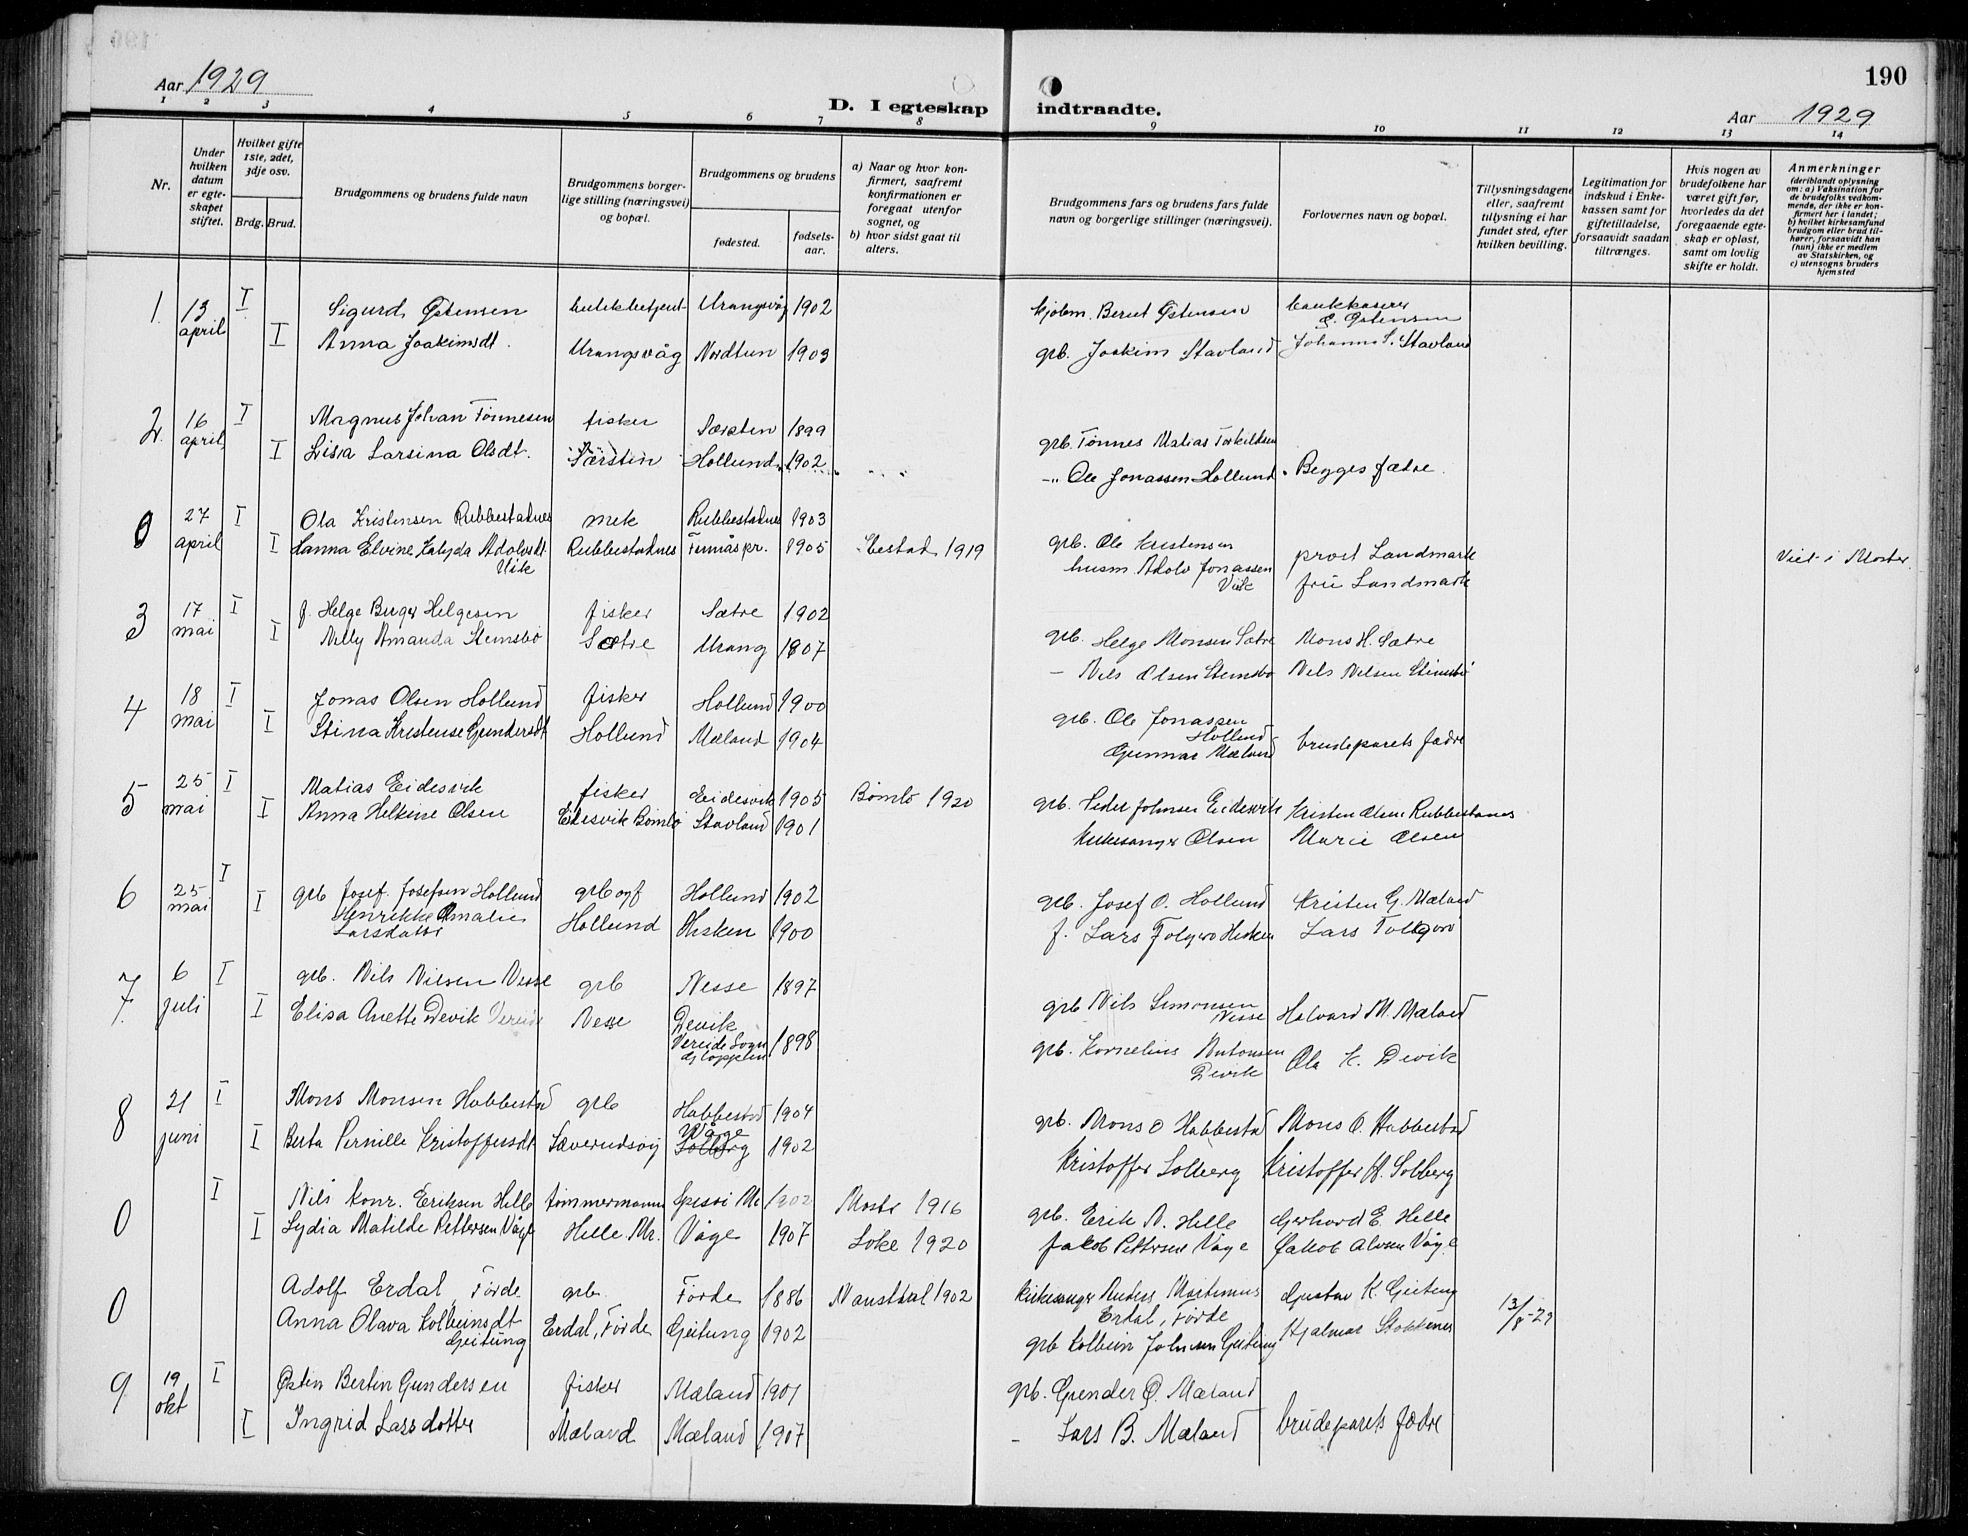 Aar 1929
D. I egteskap indtraadte.
190
Aar 1929
1 2 3 4 5 6 7 8 9 10 11 12 13 14
Nr.
Under hvilken datum er egte-skapet stiftet.
Hvilket gifte 1ste, 2det, 3dje osv.
Brdg. Brud.
Brudgommens og brudens fulde navn
Brudgommens borger-lige stilling (næringsvei) og bopæl.
Brudgommens og brudens
fødested.
fødsels-aar.
a) Naar og hvor kon-firmert, saafremt konfirmationen er foregaat utenfor sognet, og
b) hvor sidst gaat til alters.
Brudgommens fars og brudens fars fulde navn og borgerlige stillinger (næringsvei).
Forlovernes navn og bopæl.
Tillysningsdagene eller, saafremt tillysning ei har fundet sted, efter hvilken bevilling.
Legitimation for indskud i Enke-kassen samt for giftetilladelse, forsaavidt saadan tiltrænges.
Hvis nogen av brudefolkene har været gift før, hvorledes da det foregaaende egte-skap er opløst, samt om lovlig skifte er holdt.
Anmerkninger (deriblandt oplysning om: a) Vaksination for de brudefolks vedkom-mende, der ikke er kon-firmert her i landet; b) hvilket kirkesamfund brudgom eller brud til-hører, forsaavidt han (hun) ikke er medlem av Statskirken, og c) utensogns bruders hjemsted
1. 13 april I Sigurd Østensen butikbetjent Urangsvåg 1902 kjøbm. Berent Østensen bankkaserer Østensen
I Anna Joakimsdt. Urangsvåg Nordtun 1903 grb. Joakim Stavland Johannes S. Stavland
2. 16 april I Magnus Johan Tönnesen fisker Særsten 1899 grb. Tönnes Matias Torkildsen
I Lisa Larsina Olsdt. Særsten Hollund 1902 -"- Ole Jonassen Hollund Begges fædre.
0 27 april I Ola Kristensen Rubbestadnes mek Rubbestadnes 1903 grb. Ole Kristensen prost Landmark
I Hanna Elvine Adolvsdt. Vik Rubbestadnes Finnåspr. 1905 1919 husm. Adolv Jonassen Vik fru Landmark Viet i Moster
3 17 mai I f. Helge Berger Helgesen fisker Sætre 1902 grb. Helge Monsen Sætre Mons H. Sætre
I Nelly Amanda Stensbø Sætre Urang 1907 - Nils Olsen Stensbø Nils Nilsen Stensbø
4 18 mai I Jonas Olsen Hollund fisker Hollund 1900 grb. Ole Jonassen Hollund
I Stina Kristense Gundersdt Hollund Mæland 1904 Gunnar Mæland brudeparets fædre
5 25 mai I Matias Eidesvik fisker Eidesvik 1905 Bømlo 1920 grb. Peder Johnsen Eidesvik Kristen Olsen Rubbestanes
I Anna Helkine Olsen Eidesvik Bømlo Stavland 1901 Kirkesanger Olsen Marie Olsen
6 25 mai I grb Josef Josefsen Hollund grb og f Hollund 1902 grb. Josef O. Hollund Kristen G. Mæland
I Henrikke Amalie Larsdatter Hollund Hisken 1900 f. Lars Folgerø Hisken Lars Folgerø
7. 6 juli I grb. Nils Nilsen Nesse grb Nesse 1897 grb Nils Simonsen Nesse Halvard M. Mæland
I Elisa Anette Devik Vereide Nesse Devik Vereide Sogn Gloppen 1898 grb. Kornelius Antonsen Devik Ola K. Devik
8 21 juni I Mons Monsen Habbestad grb Habbestad 1904 grb. Mons O Habbestad Mons O. Habbestad
I Berta Pernille Kristoffersdt Sæverudsøy Våge Solberg 1902 Kristoffer Solberg Kristoffer A. Solberg
0 I Nils Konr. Eriksen Helle tømmermann Spissøi Mr 1902 Moster 1916 grb. Erik N. Helle Gerhard E. Helle
I Lydia Matilde Pettersen Våge Helle Mr. Våge 1907 Loke 1920 Jakob Pettersen Våge Jakob Våge
0 Adolf Erdal, Förde grb. Förde 1886 Naustdal 1902 kirkesanger Anders Martinus Erdal, Förde Gustav K. Geitung
Anna Olava Kolbeinsdt Geitung Erdal, Förde Geitung 1902 grb Kolbein Johnsen Geitung Hjalmar Stokkenes 13/8-29
9. 19 okt I Østen Bertin Gundersen fisker Mæland 1901 grb. Gunder Ø. Mæland
I Ingrid Larsdotter Mæland Mæland 1907 - Lars B. Mæland brudeparets fædre